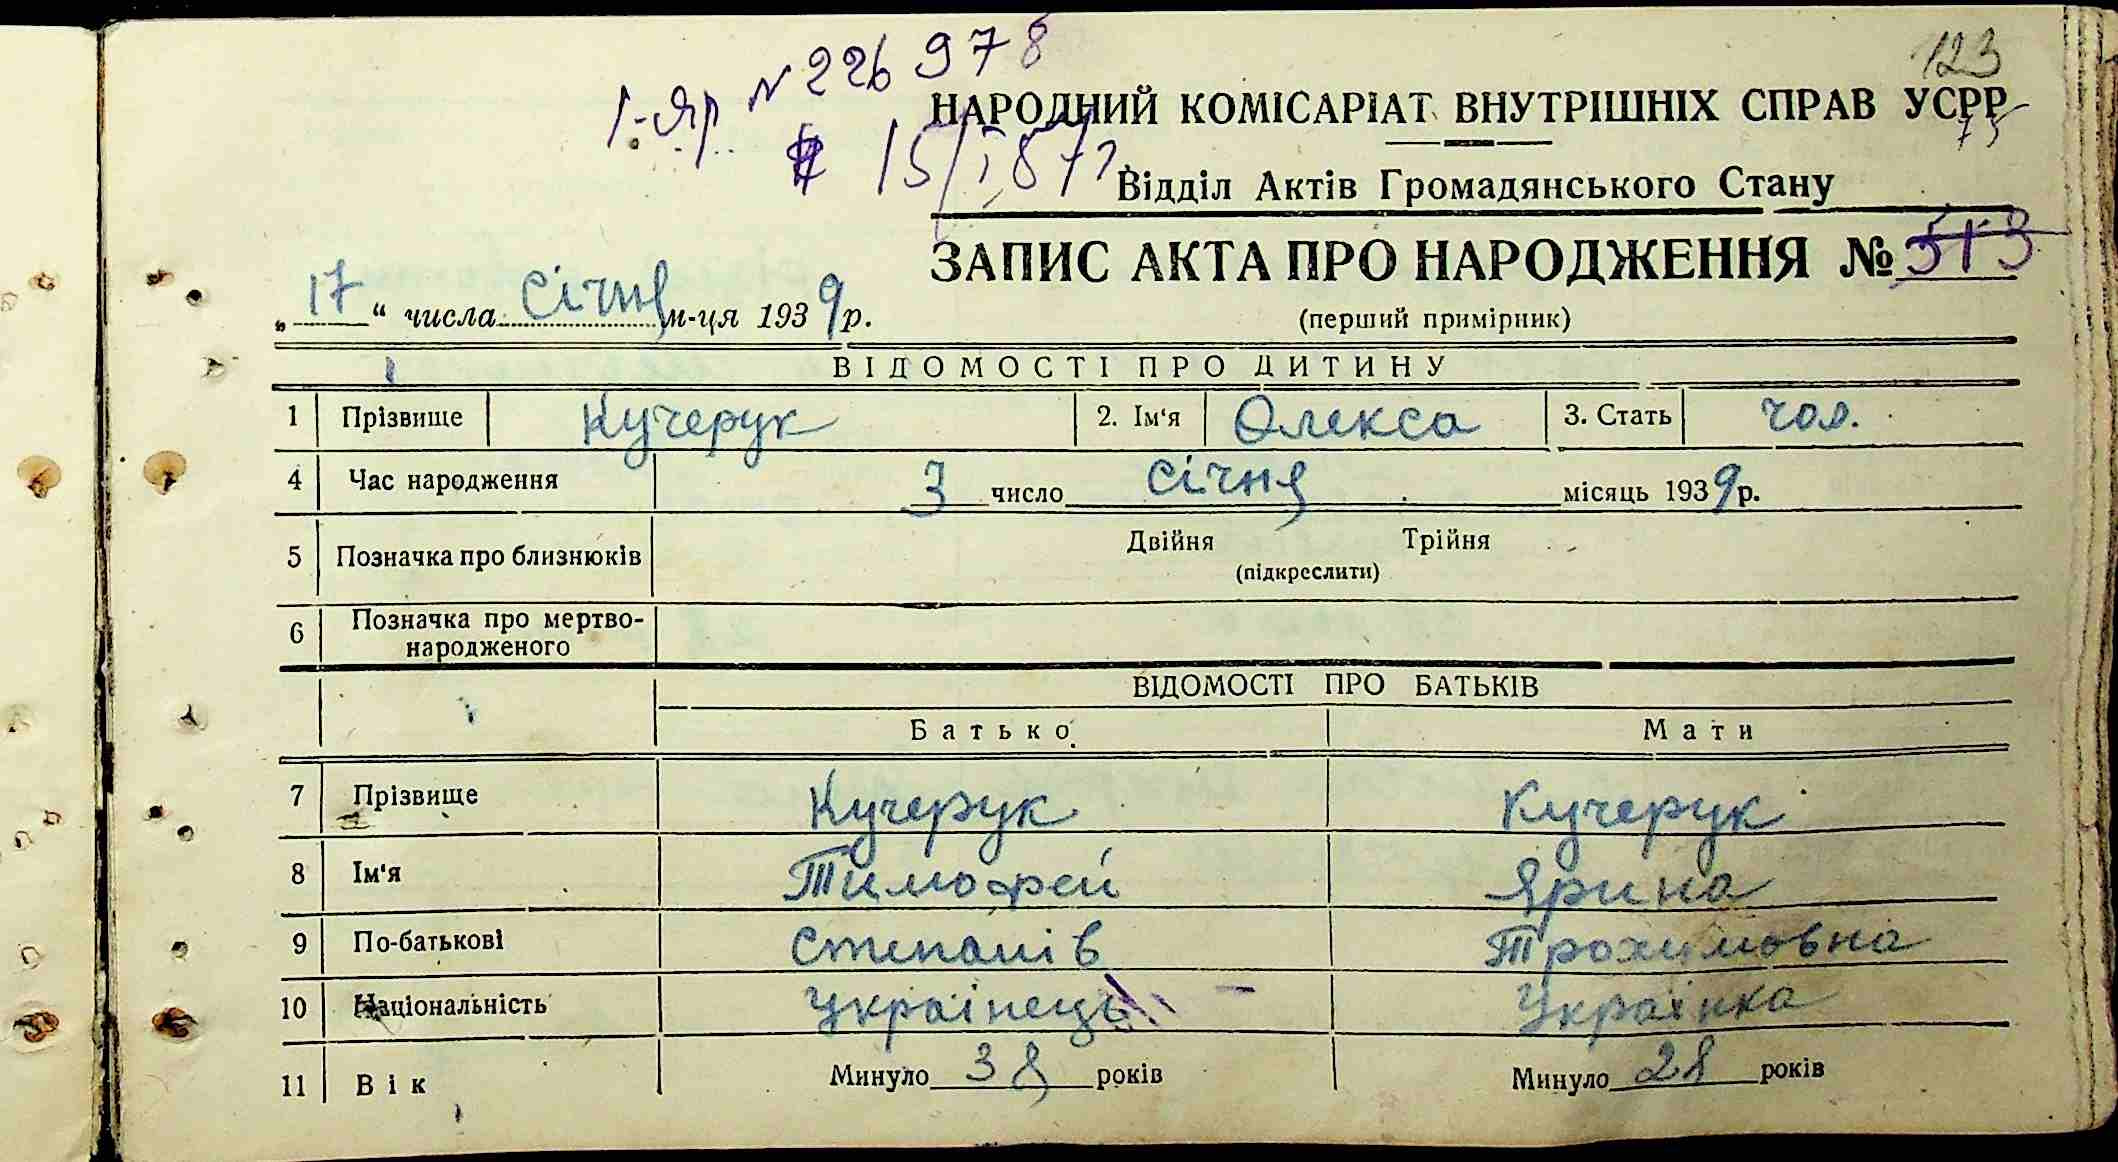 123
I-яр. N 226978
НАРОДНИЙ КОМІСАРІАТ ВНУТРІШНІХ СПРАВ УСРР
75
15/I 87
Відділ Актів Громадянського Стану
ЗАПИС АКТА ПРО НАРОДЖЕННЯ № 513
„17“ числа січня м-ця 1939 р.
(перший примірник)
ВІДОМОСТІ ПРО ДИТИНУ
1 Прізвище Кучерук 2. Ім'я Олекса 3. Стать чол.
4 Час народження 3 число січня місяць 1939 р.
5 Позначка про близнюків Двійня Трійня
(підкреслити)
6 Позначка про мертво-
народженого
ВІДОМОСТІ ПРО БАТЬКІВ
Батько Мати
7 Прізвище Кучерук Кучерук
8 Ім'я Тимофей Ярина
9 По-батькові Степанів Трохимовна
10 Національність Українець Українка
11 Вік Минуло 38 років Минуло 28 років